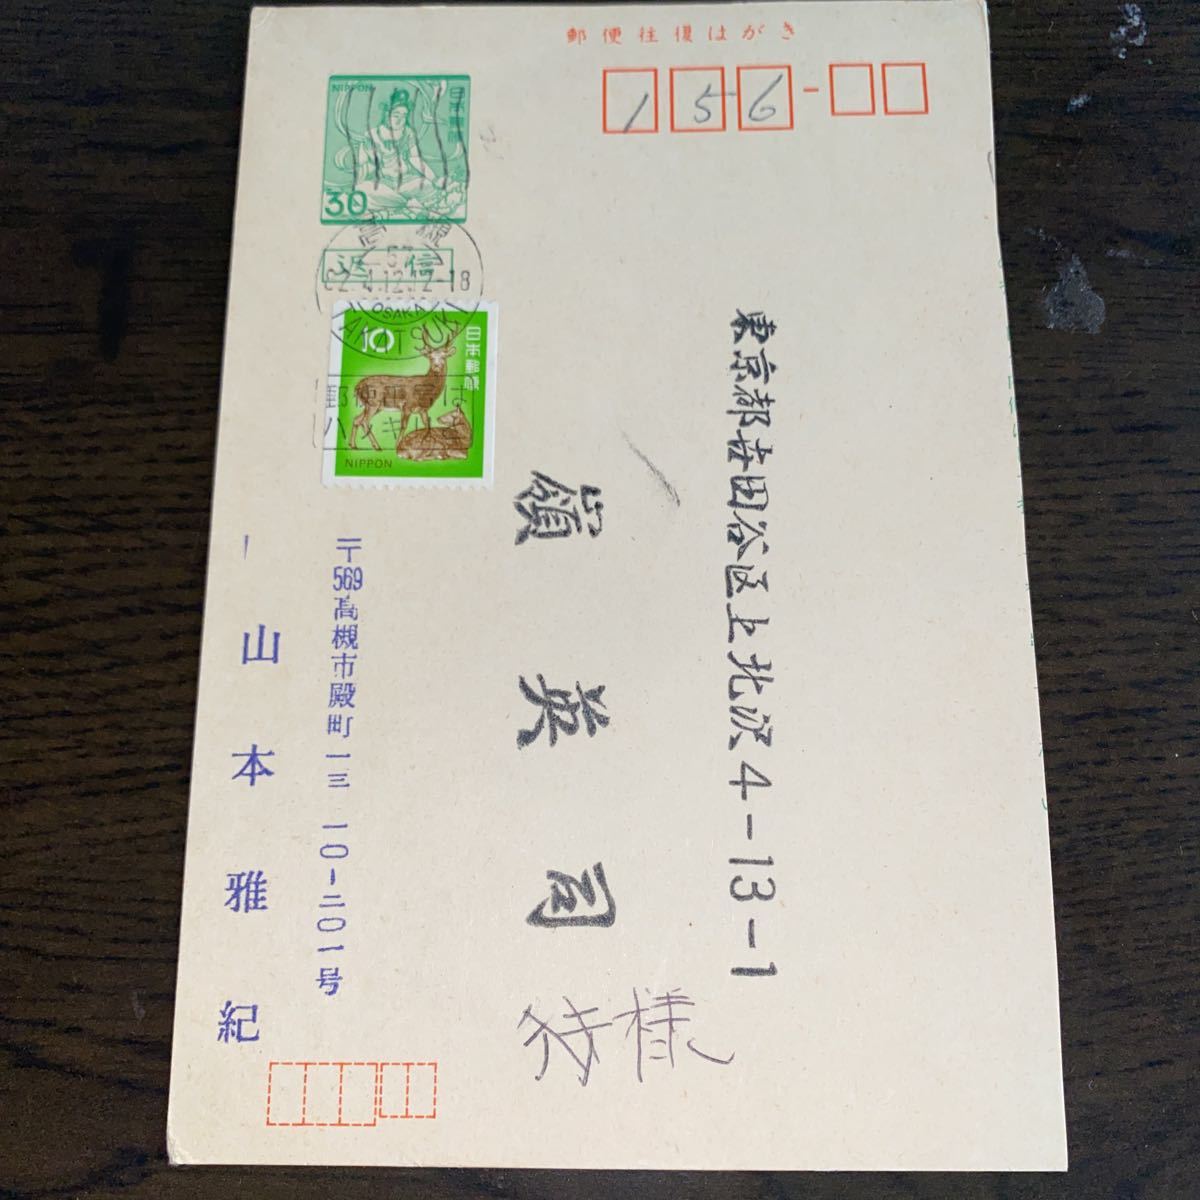 郵便往復はがき
156
NIPPON
日本郵便
30
返信
高槻
57
62.4.12 12-18
OSAKA
TAKATSUKI
10
日本郵便
NIPPON
郵便番号は
ハッキリと
東京都世田谷区上北沢4-13-1
嶺英司
行様
〒569高槻市殿町一三 一〇-二〇一号
山本雅紀